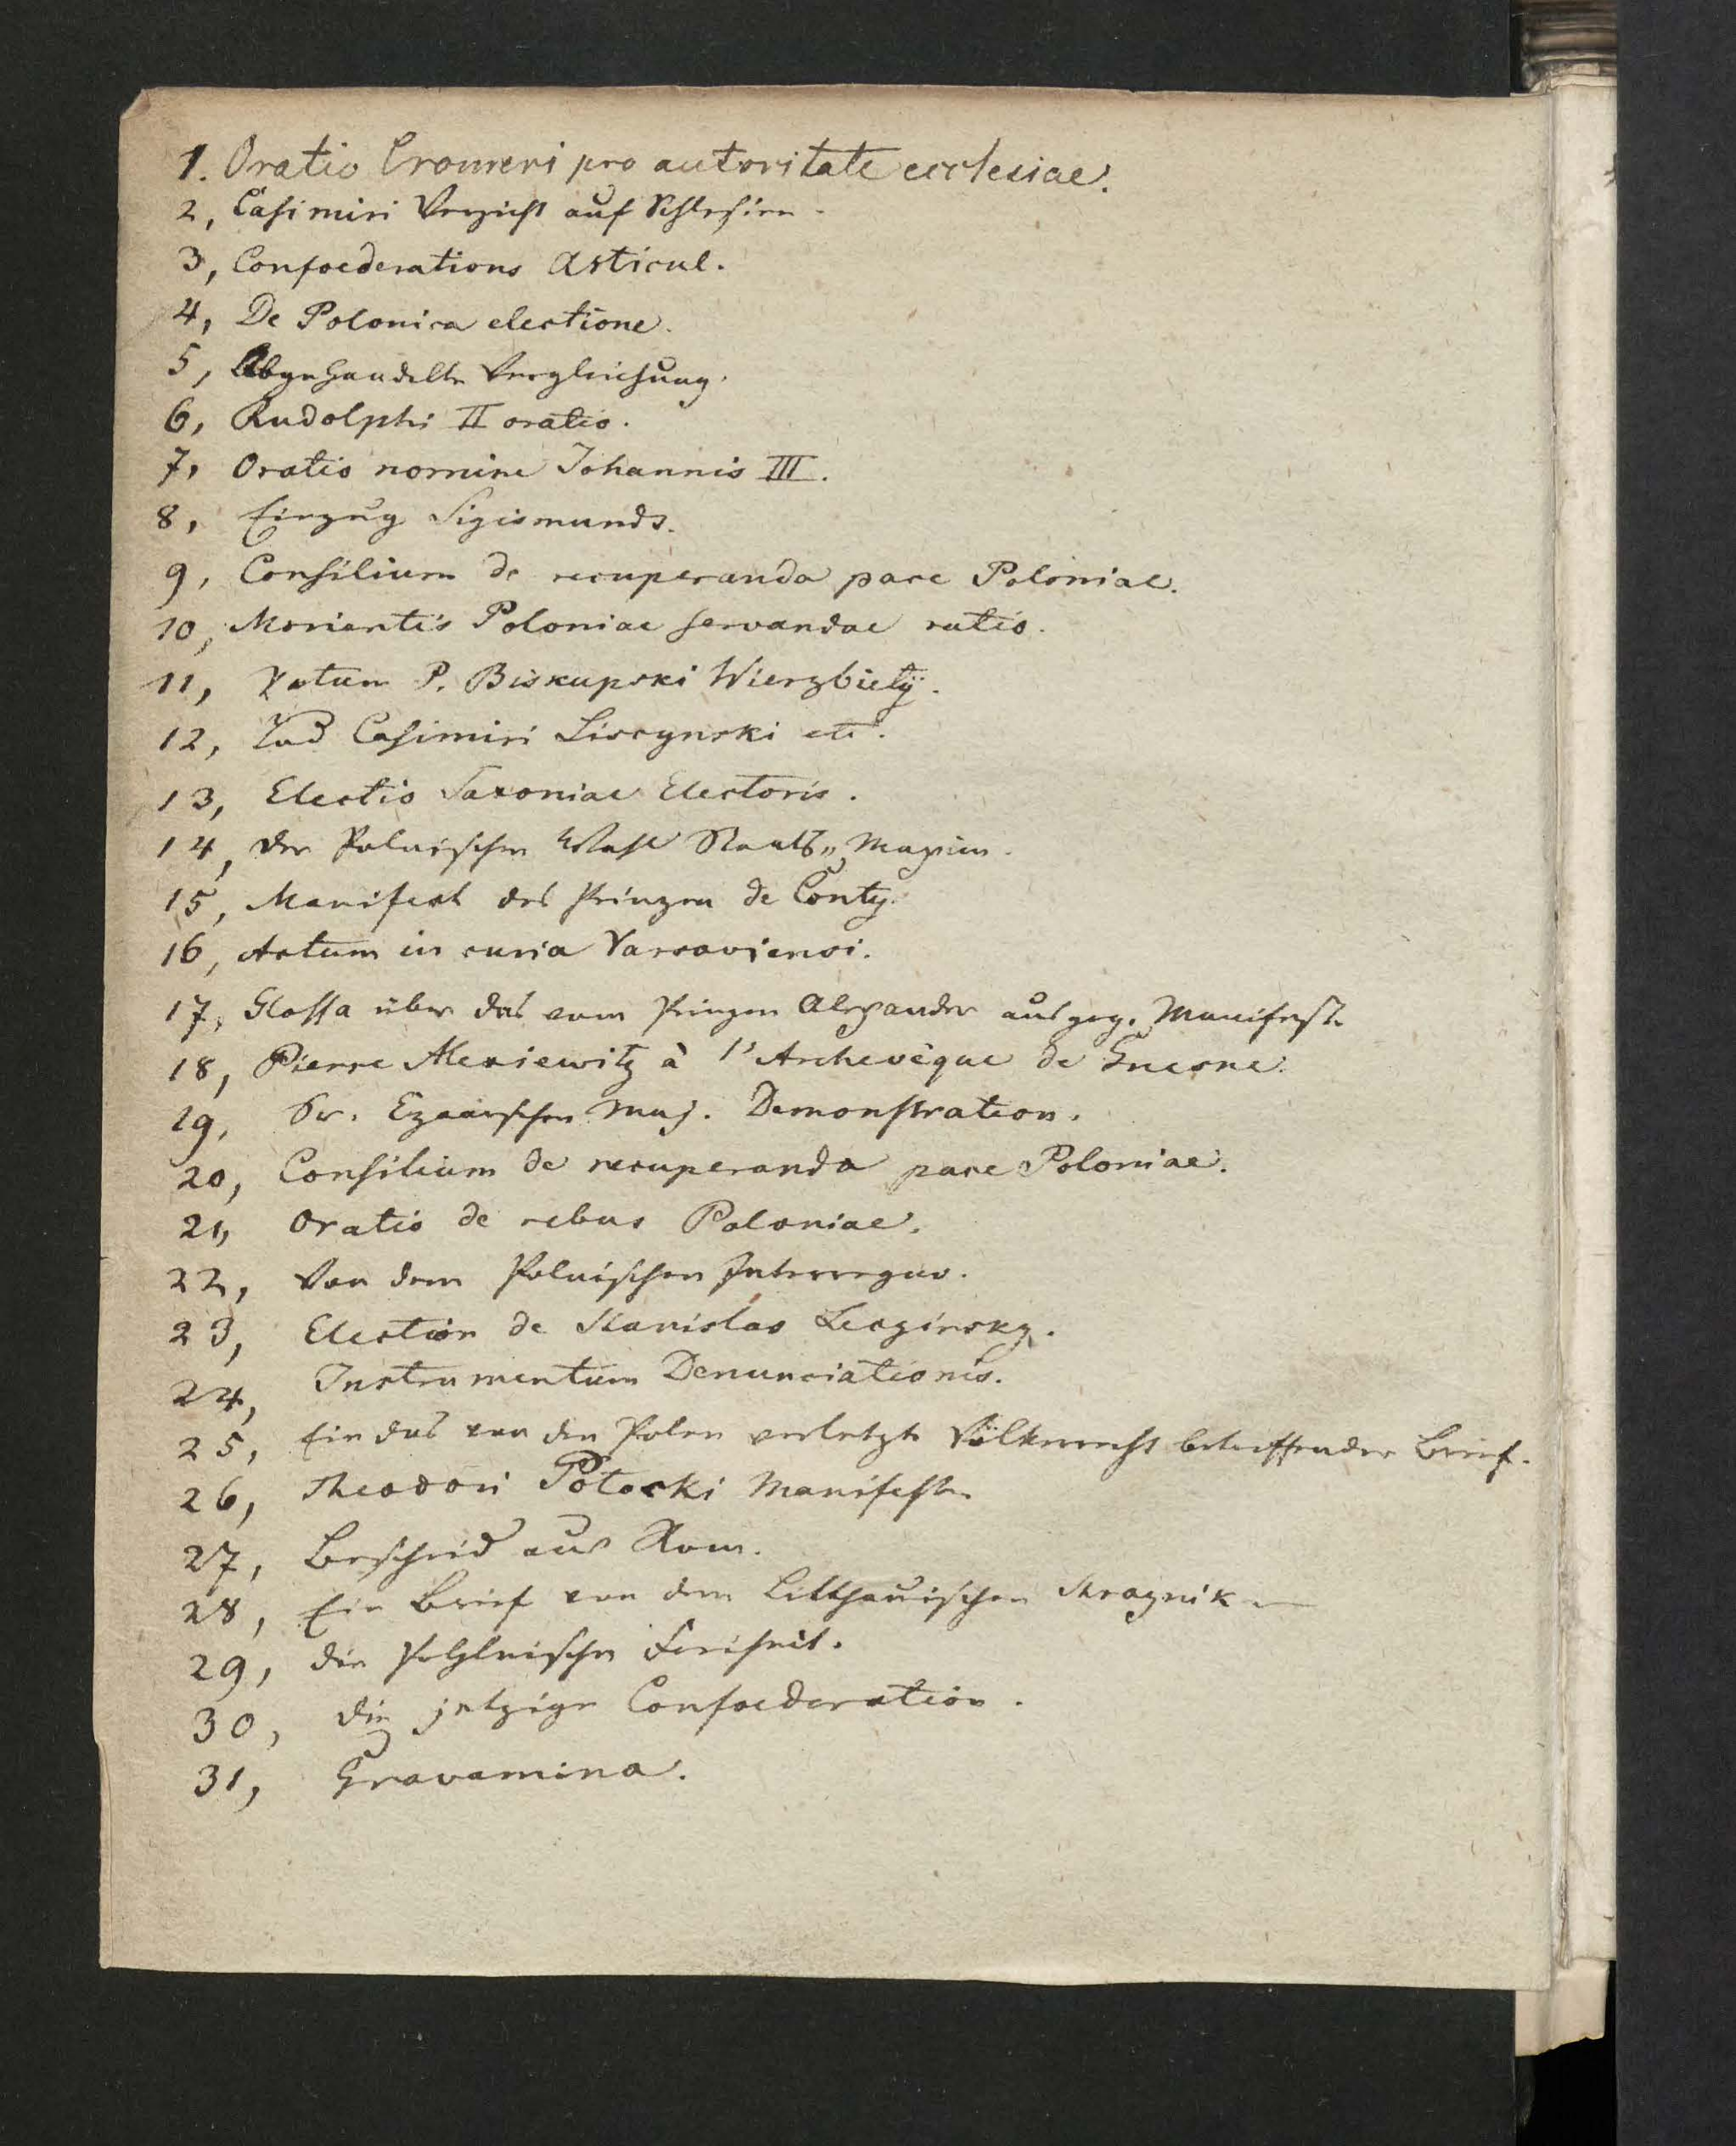 1. Oratio Cromeri pro autoritate ecclesiae.
2, Casimiri Verzicht auf Schlesien.
3, Confoederations Articul.
4, De Polonica electione.
5, Abgehandelte Vergleichung.
6, Rudolphi II oratio.
7, Oratio nomine Johannis III.
8, Einzug Sigismunds.
9, Consilium de recuperanda pace Poloniae.
10, Morientis Poloniae servandae ratio.
11, Votum P. Biskupski Wierzbiety.
12, Tod Casimiri Liscynski etc.
13, Electio Saxoniae Electoris.
14, der Polnischen Wahl Staats„ Maxim.
15, Manifest des Prinzen de Conty.
16, Actum in curia Varsaviensi.
17, Glossa über das vom Prinzen Alexander ausgeg. Manifest.
18, Pierre Alexiewitz à l'Archevêque de Gnesne.
19, Sr. Czaarischen Maj. Demonstration.
20, Consilium de recuperanda pace Poloniae.
21, Oratio de rebus Poloniae.
22, Von dem Polnischen Interregno.
23, Election de Stanislas Leszinsky.
24, Instrumentum Denunciationis.
25, Ein das von den Polen verletzte Völkerrecht betreffender Brief.
26, Theodori Potocki Manifest.
27, Bescheid aus Rom.
28, Ein Brief von dem Litthauischen Straznik
29, die Pohlnische Freiheit.
30, die jetzige Confoederation.
31, Gravamina.